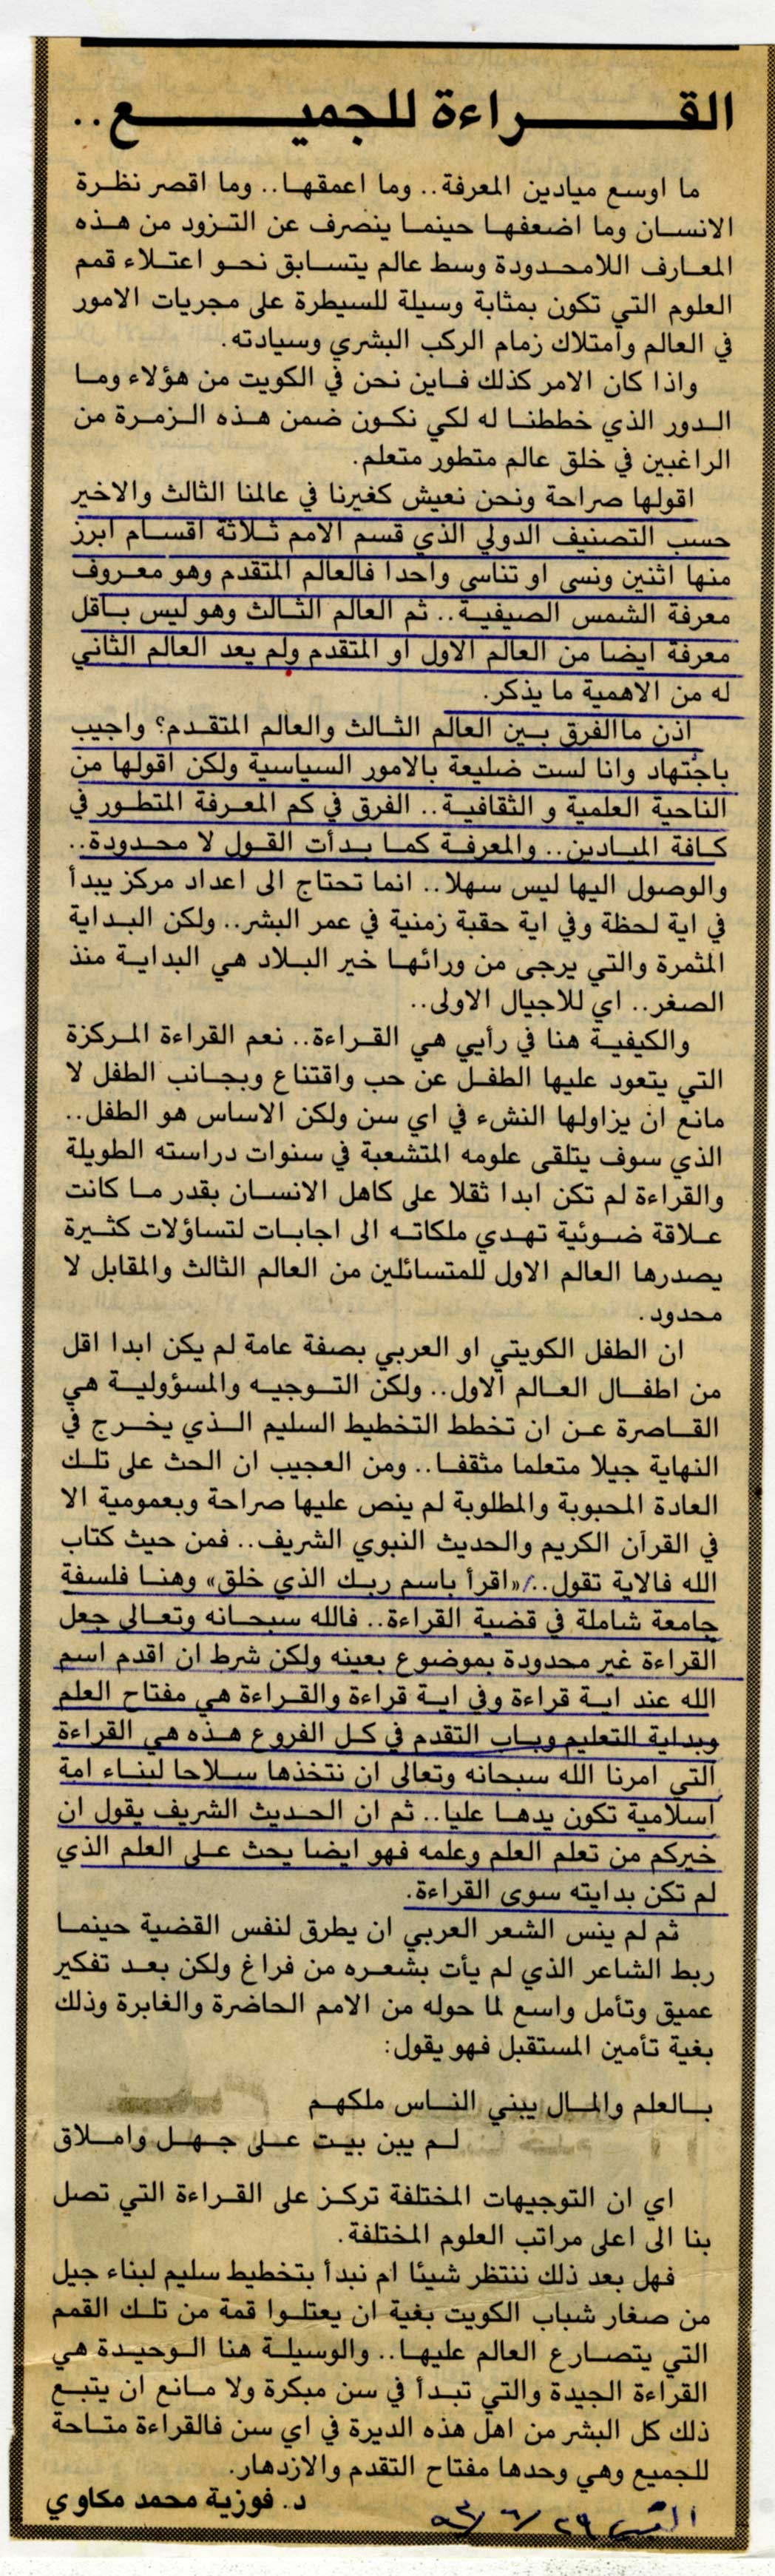 القراءة للجميع..
ما اوسع ميادين المعرفة.. وما اعمقها.. وما اقصر نظرة
الانسان وما اضعفها حينما ينصرف عن التزود من هذه
المعارف اللامحدودة وسط عالم يتسابق نحو اعتلاء قمم
العلوم التي تكون بمثابة وسيلة للسيطرة على مجريات الامور
في العالم وامتلاك زمام الركب البشري وسيادته.
واذا كان الامر كذلك فاين نحن في الكويت من هؤلاء وما
الدور الذي خططنا له لكي نكون ضمن هذه الزمرة من
الراغبين في خلق عالم متطور متعلم.
اقولها صراحة ونحن نعيش كغيرنا في عالمنا الثالث والاخير
حسب التصنيف الدولي الذي قسم الامم ثلاثة اقسام ابرز
منها اثنين ونسى او تناسى واحدا فالعالم المتقدم وهو معروف
معرفة الشمس الصيفية.. ثم العالم الثالث وهو ليس باقل
معرفة ايضا من العالم الاول او المتقدم ولم يعد العالم الثاني
له من الاهمية ما يذكر.
اذن ما الفرق بين العالم الثالث والعالم المتقدم؟ واجيب
باجتهاد وانا لست ضليعة بالامور السياسية ولكن اقولها من
الناحية العلمية و الثقافية.. الفرق في كم المعرفة المتطور في
كافة الميادين.. والمعرفة كما بدأت القول لا محدودة..
والوصول اليها ليس سهلا.. انما تحتاج الى اعداد مركز يبدأ
في اية لحظة وفي اية حقبة زمنية في عمر البشر.. ولكن البداية
المثمرة والتي يرجى من ورائها خير البلاد هي البداية منذ
الصغر.. اي للاجيال الاولى..
والكيفية هنا في رأيي هي القراءة.. نعم القراءة المركزة
التي يتعود عليها الطفل عن حب واقتناع وبجانب الطفل لا
مانع ان يزاولها النشء في اي سن ولكن الاساس هو الطفل..
الذي سوف يتلقى علومه المتشعبة في سنوات دراسته الطويلة
والقراءة لم تكن ابدا ثقلا على كاهل الانسان بقدر ما كانت
علاقة ضوئية تهدي ملكاته الى اجابات لتساؤلات كثيرة
يصدرها العالم الاول للمتسائلين من العالم الثالث والمقابل لا
محدود.
ان الطفل الكويتي او العربي بصفة عامة لم يكن ابدا اقل
من اطفال العالم الاول.. ولكن التوجيه والمسؤولية هي
القاصرة عن ان تخطط التخطيط السليم الذي يخرج في
النهاية جيلا متعلما مثقفا.. ومن العجيب ان الحث على تلك
العادة المحبوبة والمطلوبة لم ينص عليها صراحة وبعمومية الا
في القرآن الكريم والحديث النبوي الشريف.. فمن حيث كتاب
الله فالاية تقول.. «اقرأ باسم ربك الذي خلق» وهنا فلسفة
جامعة شاملة في قضية القراءة.. فالله سبحانه وتعالى جعل
القراءة غير محدودة بموضوع بعينه ولكن شرط ان اقدم اسم
الله عند اية قراءة وفي اية قراءة والقراءة هي مفتاح العلم
وبداية للتعليم وباب التقدم في كل الفروع هذه هي القراءة
التي امرنا الله سبحانه وتعالى ان نتخذها سلاحا لبناء امة
اسلامية تكون يدها عليا.. ثم ان الحديث الشريف يقول ان
خيركم من تعلم العلم وعلمه فهو ايضا يحث على العلم الذي
لم تكن بدايته سوى القراءة.
ثم لم ينس الشعر العربي ان يطرق لنفس القضية حينما
ربط الشاعر الذي لم يأت بشعره من فراغ ولكن بعد تفكير
عميق وتأمل واسع لما حوله من الامم الحاضرة والغابرة وذلك
بغية تأمين المستقبل فهو يقول:
بالعلم والمال يبني الناس ملكهم
لم يبن بيت على جهل واملاق
اي ان التوجيهات المختلفة تركز على القراءة التي تصل
بنا الى اعلى مراتب العلوم المختلفة.
فهل بعد ذلك ننتظر شيئا ام نبدأ بتخطيط سليم لبناء جيل
من صغار شباب الكويت بغية ان يعتلوا قمة من تلك القمم
التي يتصارع العالم عليها.. والوسيلة هنا الوحيدة هي
القراءة الجيدة والتي تبدأ في سن مبكرة ولا مانع ان يتبع
ذلك كل البشر من اهل هذه الديرة في اي سن فالقراءة متاحة
للجميع وهي وحدها مفتاح التقدم والازدهار.
د. فوزية محمد مكاوي
٢٩/٦/٩٣